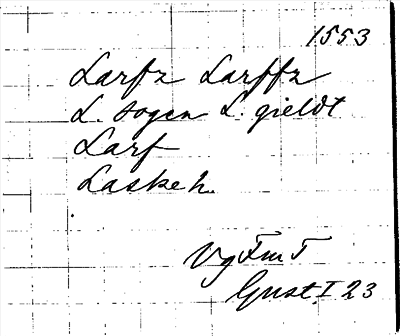 1553
Larfz Larffz
L. sogen L. gieldt
Larf
Laskeh.
Vg Fm T
Gust. I 23